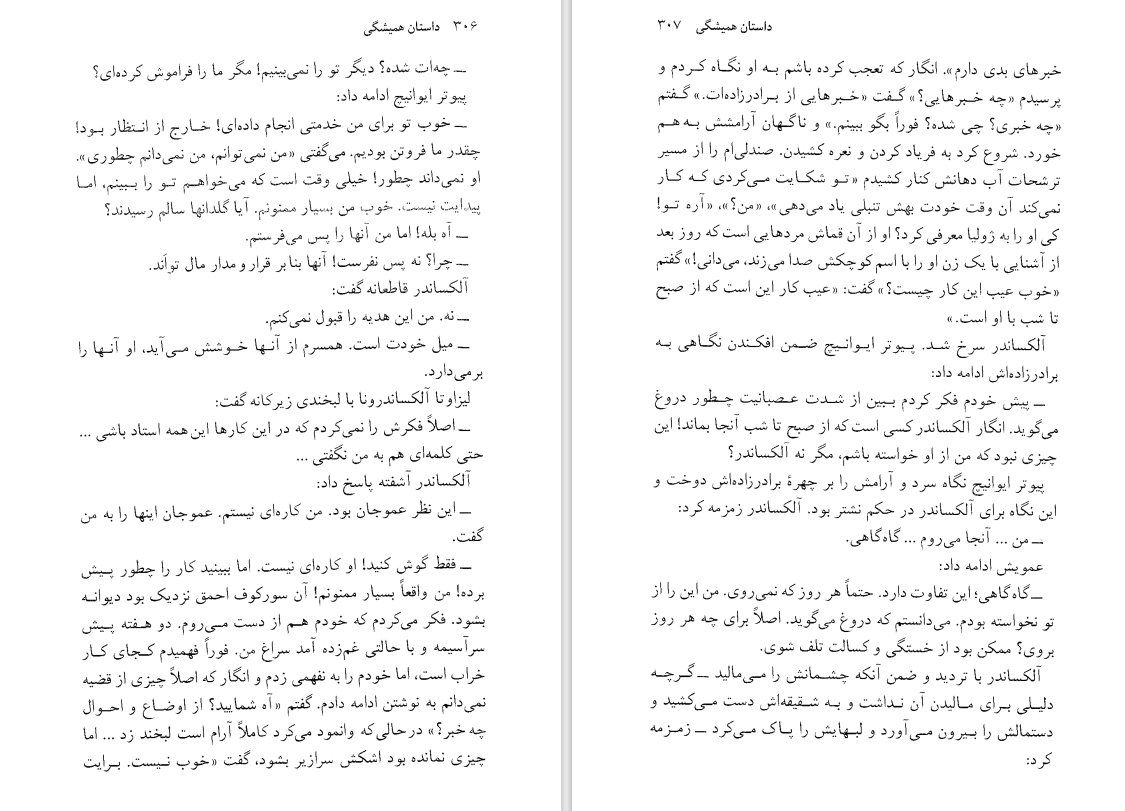 ۳۰۶ داستان همیشگی
ــ چه‌ات شده؟ دیگر تو را نمی‌بینیم! مگر ما را فراموش کرده‌ای؟
پیوتر ایوانیچ ادامه داد:
ــ خوب تو برای من خدمتی انجام داده‌ای! خارج از انتظار بود!
چقدر ما فروتن بودیم. می‌گفتی «من نمی‌توانم، من نمی‌دانم چطوری».
او نمی‌داند چطور! خیلی وقت است که می‌خواهم تو را ببینم، اما
پیدایت نیست. خوب من بسیار ممنونم. آیا گلدانها سالم رسیدند؟
ــ آه بله! اما من آنها را پس می‌فرستم.
ــ چرا؟ نه پس نفرست! آنها بنا بر قرار و مدار مال تواَند.
آلکساندر قاطعانه گفت:
ــ نه. من این هدیه را قبول نمی‌کنم.
ــ میل خودت است. همسرم از آنها خوشش می‌آید، او آنها را
برمی‌دارد.
لیزاوتا آلکساندرونا با لبخندی زیرکانه گفت:
ــ اصلاً فکرش را نمی‌کردم که در این کارها این همه استاد باشی ...
حتی کلمه‌ای هم به من نگفتی ...
آلکساندر آشفته پاسخ داد:
ــ این نظر عموجان بود. من کاره‌ای نیستم. عموجان اینها را به من
گفت.
ــ فقط گوش کنید! او کاره‌ای نیست. اما ببینید کار را چطور پیش
برده! من واقعاً بسیار ممنونم! آن سورکوف احمق نزدیک بود دیوانه
بشود. فکر می‌کردم که خودم هم از دست می‌روم. دو هفته پیش
سرآسیمه و با حالتی غم‌زده آمد سراغ من. فوراً فهمیدم کجای کار
خراب است، اما خودم را به نفهمی زدم و انگار که اصلاً چیزی از قضیه
نمی‌دانم به نوشتن ادامه دادم. گفتم «آه شمایید؟ از اوضاع و احوال
چه خبر؟» در حالی که وانمود می‌کرد کاملاً آرام است لبخند زد ... اما
چیزی نمانده بود اشکش سرازیر بشود، گفت «خوب نیست. برایت
داستان همیشگی ۳۰۷
خبرهای بدی دارم». انگار که تعجب کرده باشم به او نگاه کردم و
پرسیدم «چه خبرهایی؟» گفت «خبرهایی از برادرزاده‌ات.» گفتم
«چه خبری؟ چی شده؟ فوراً بگو ببینم.» و ناگهان آرامشش به هم
خورد. شروع کرد به فریاد کردن و نعره کشیدن. صندلی‌ام را از مسیر
ترشحات آب دهانش کنار کشیدم «تو شکایت می‌کردی که کار
نمی‌کند آن وقت خودت بهش تنبلی یاد می‌دهی»، «من؟»، «آره تو!
کی او را به ژولیا معرفی کرد؟ او از آن قماش مردهایی است که روز بعد
از آشنایی با یک زن او را با اسم کوچکش صدا می‌زند، می‌دانی!» گفتم
«خوب عیب این کار چیست؟» گفت: «عیب کار این است که از صبح
تا شب با او است.»
آلکساندر سرخ شد. پیوتر ایوانیچ ضمن افکندن نگاهی به
برادرزاده‌اش ادامه داد:
ــ پیش خودم فکر کردم ببین از شدت عصبانیت چطور دروغ
می‌گوید. انگار آلکساندر کسی است که از صبح تا شب آنجا بماند! این
چیزی نبود که من از او خواسته باشم، مگر نه آلکساندر؟
پیوتر ایوانیچ نگاه سرد و آرامش را بر چهرهٔ برادرزاده‌اش دوخت و
این نگاه برای آلکساندر در حکم نشتر بود. آلکساندر زمزمه کرد:
ــ من ... آنجا می‌روم ... گاه‌گاهی.
عمویش ادامه داد:
ــ گاه‌گاهی؛ این تفاوت دارد. حتماً هر روز که نمی‌روی. من این را از
تو نخواسته بودم. می‌دانستم که دروغ می‌گوید. اصلاً برای چه هر روز
بروی؟ ممکن بود از خستگی و کسالت تلف شوی.
آلکساندر با تردید و ضمن آنکه چشمانش را می‌مالید ــ گرچه
دلیلی برای مالیدن آن نداشت و به شقیقه‌اش دست می‌کشید و
دستمالش را بیرون می‌آورد و لبهایش را پاک می‌کرد ــ زمزمه
کرد: